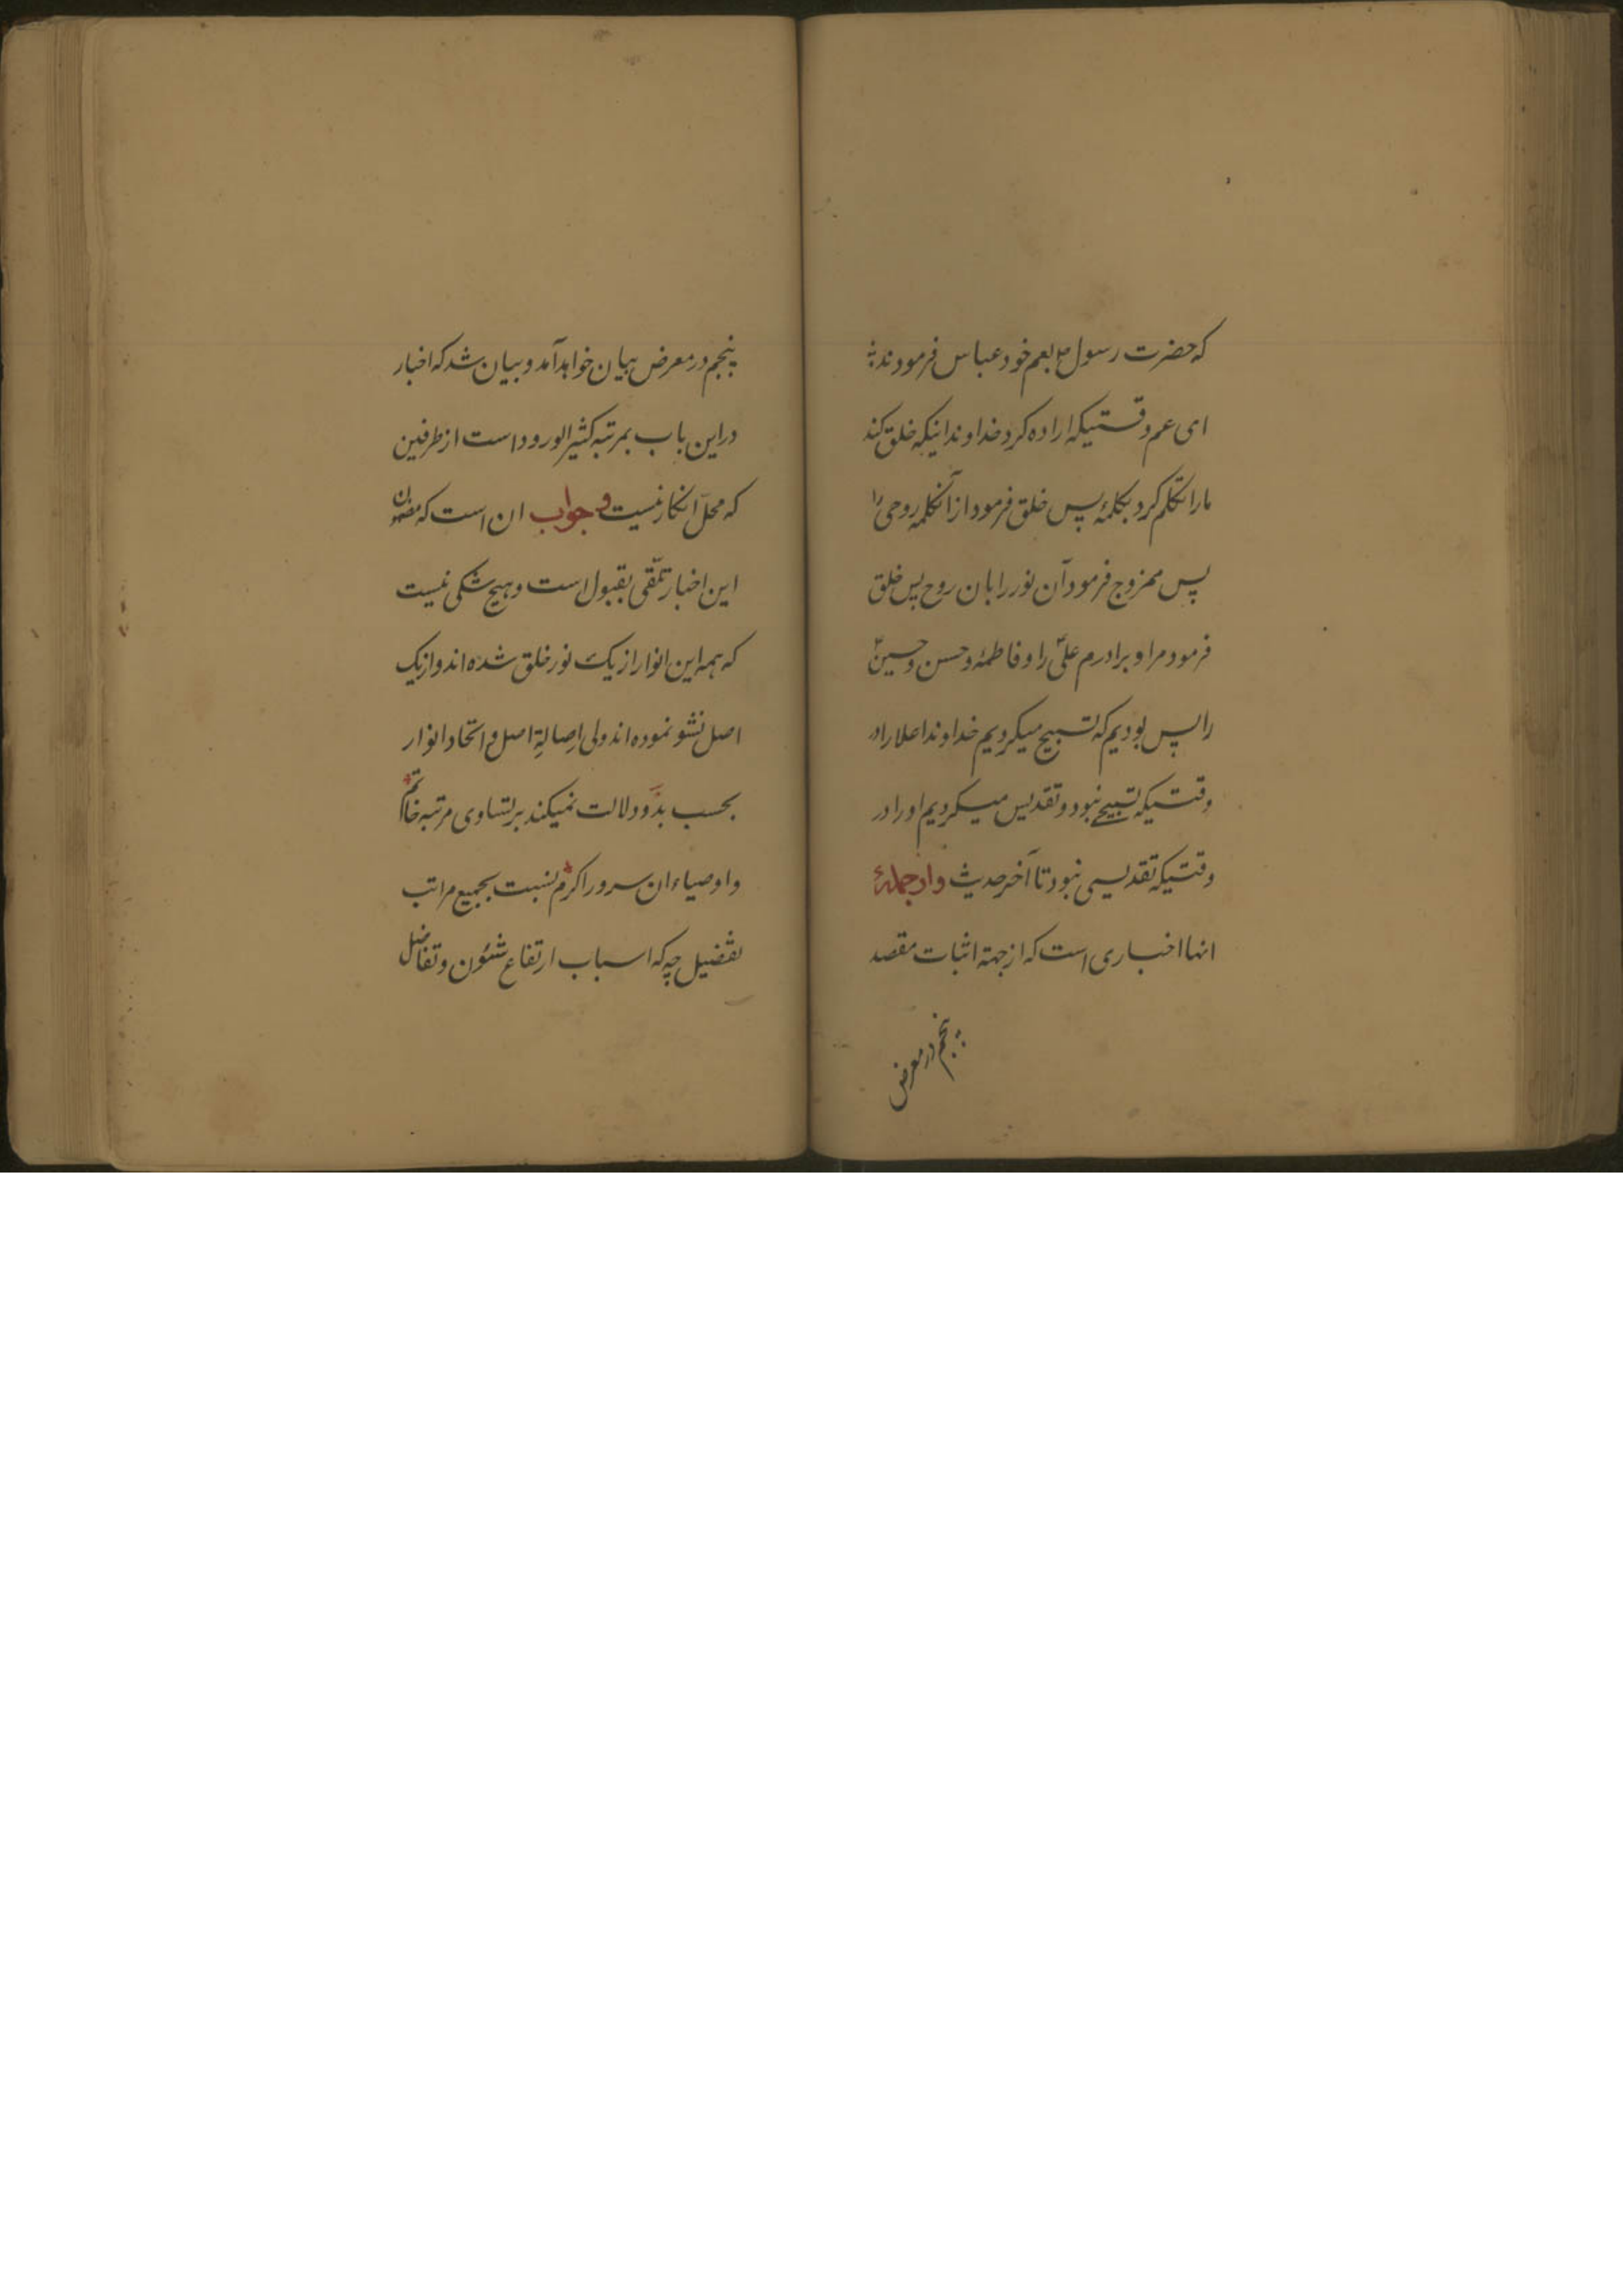 که حضرت رسول ص بعم خود عباس فرمودند
ای عم وقتیکه اراده کرد خداوند اینکه خلق کند
مارا تکلم کرد بکلمهٔ پس خلق فرمود از آنکلمه روحی را
پس ممزوج فرمود آن نور را بان روح پس خلق
فرمود مرا و برادرم علیّ را و فاطمه و حسن و حسینّ
را پس بودیم که تسبیح میکردیم خداوند اعلا را در
وقتیکه تسبیحی نبود و تقدیس میکردیم او را در
وقتیکه تقدیسی نبود تا آخر حدیث واز جملهٔ
انها اخباری است که از جهة اثبات مقصد
پنجم در معرض
پنجم در معرض بیان خواهد آمد و بیان شد که اخبار
دراین باب بمرتبه کثیر الورود است از طرفین
که محلّ انکار نیست و جواب ان است که مضمون
این اخبار تلّقی بقبول است و هیچ شکی نیست
که همه این انوار از یک نور خلق شده اند و از یک
اصل نشو نموده اند ولی اِصالةِ اصل و اتحاد انوار
بحسب بدَو دلالت نمیکند بر تساوی مرتبه خاتم
و اوصیاء ان سرور اکرم نسبت بجمیع مراتب
تفضیل چه که اسباب ارتفاع شئون و تفاضل